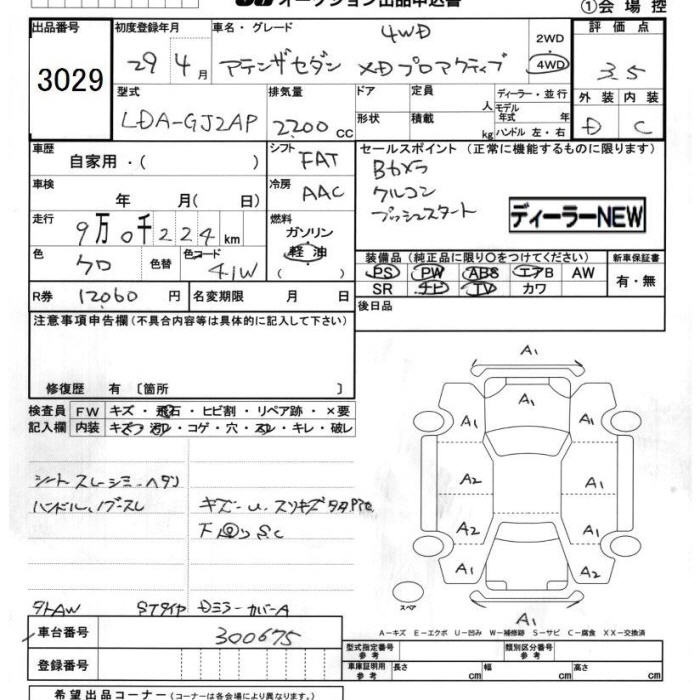 オークション出品申込書
①会場控
出品番号
3029
初度登録年月
29 4月
車名・グレード
4WD
アテンザセダン XDプロアクティブ
2WD
・
4WD
評価点
3.5
外装 内装
D C
型式
LDA-GJ2AP
排気量
2200 cc
ドア
形状
定員
人
積載
kg
ディーラー・並行
モデル年式 年
ハンドル 左・右
車歴
自家用・( )
シフト
FAT
車検
年 月( 日)
冷房
AAC
走行
9万0千224km
燃料
ガソリン
軽油
( )
色
クロ
色替
色コード
41W
R券 12060 円
名変期限 月 日
セールスポイント (正常に機能するものに限ります)
Bカメラ
クルコン
プッシュスタート
ディーラーNEW
装備品 (純正品に限り○をつけてください)
新車保証書
PS PW ABS エアB AW
SR ナビ TV カワ
有・無
後日品
注意事項申告欄(不具合内容等は具体的に記入して下さい)
修復歴 有〔箇所 〕
検査員
記入欄
FW キズ・飛石・ヒビ割・リペア跡・×要
内装 キズ・汚レ・コゲ・穴・スレ・キレ・破レ
シートスレ シミ ヘタリ
ハンドル、ノブスレ
キズ U スリキズ タッチpre
下回りS.C
タトAW STタイヤ Dミラーカバー A
A1
A1
A1
A1
A2
A2
A2
A2
A1
A1
A1
A1
スペア
A-キズ E-エクボ U-凹み W-補修跡 S-サビ C-腐食 XX-交換済
車台番号
300675
登録番号
型式指定番号
参考
類別区分番号
参考
車庫証明用
参考
長さ cm
幅 cm
高さ cm
希望出品コーナー(コーナーは各会場により異なります。)